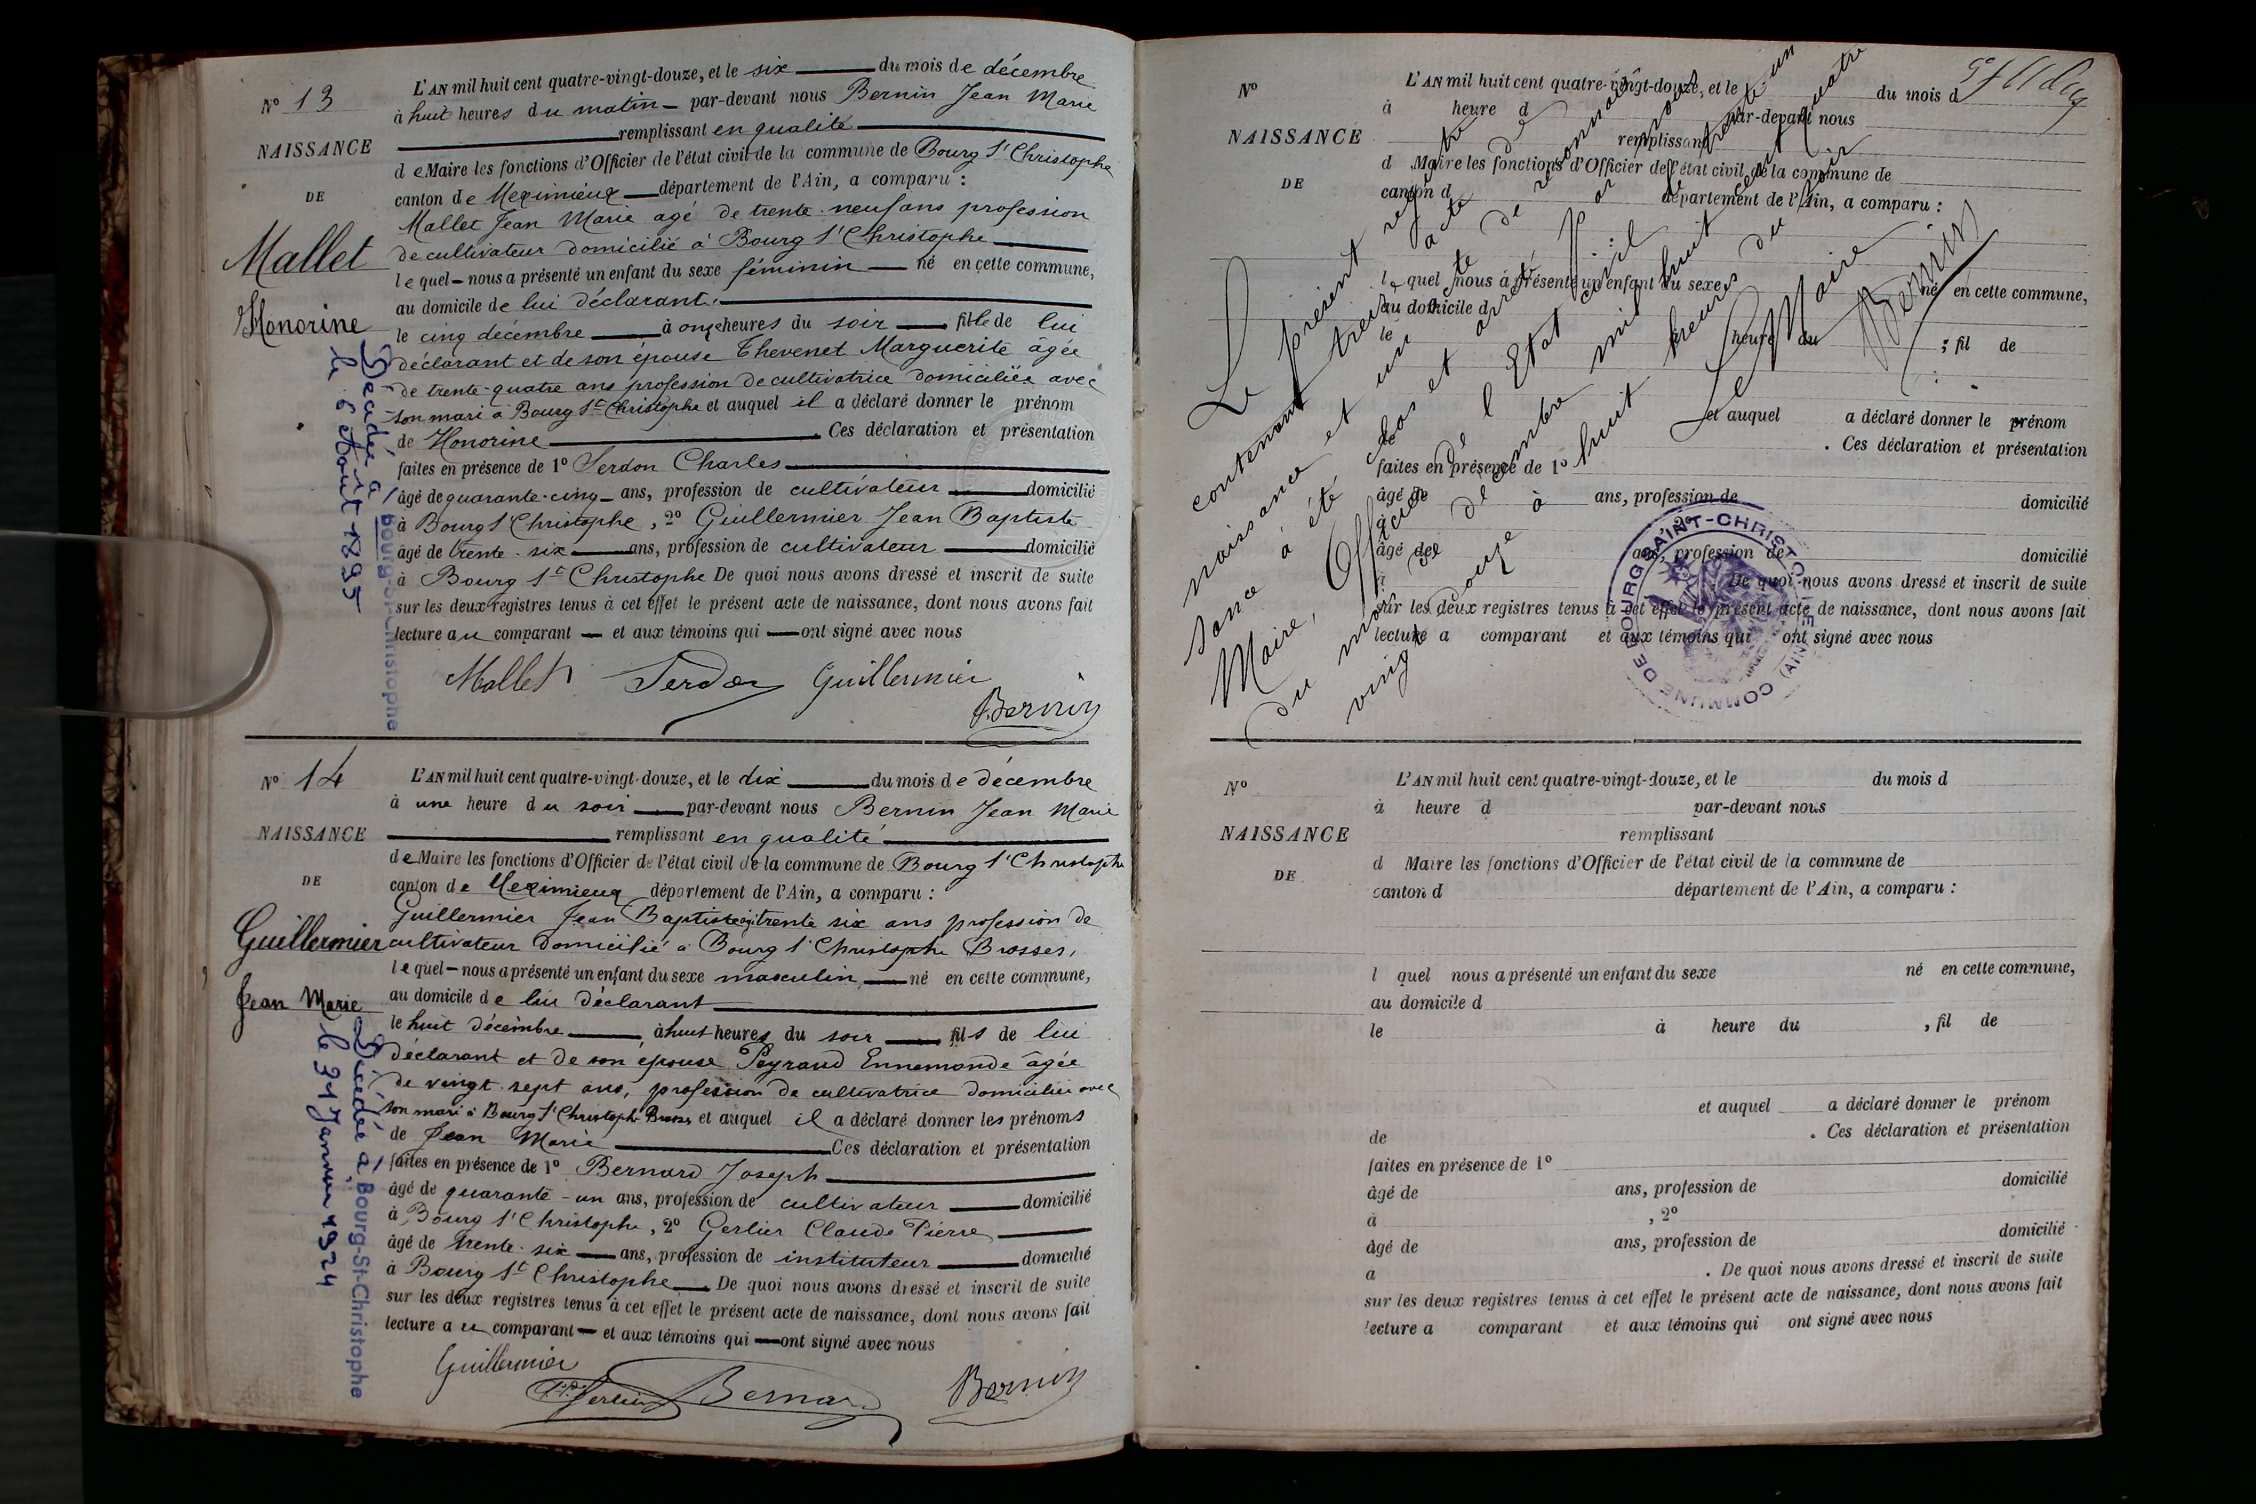 N° 13
NAISSANCE
DE
Mallet
Honorine
Décédée à
Bourg-St-Christophe
le 6 Aout 1895
L'AN mil huit cent quatre-vingt-douze, et le six du mois de décembre
à huit heures du matin par-devant nous Bernin Jean Marie
remplissant en qualité
de Maire les fonctions d'Officier de l'état civil de la commune de Bourg St Christophe
canton de Meximieux département de l'Ain, a comparu :
Mallet Jean Marie agé de trente-neuf ans profession
de cultivateur domicilié à Bourg St Christophe
lequel nous a présenté un enfant du sexe féminin né en cette commune,
au domicile de lui déclarant.
le cinq décembre à onze heures du soir fille de lui
déclarant et de son épouse Thevenet Marguerite âgée
de trente-quatre ans profession de cultivatrice domiciliée avec
son mari à Bourg St Christophe et auquel il a déclaré donner le prénom
de Honorine . Ces déclaration et présentation
faites en présence de 1° Serdon Charles
âgé de quarante-cinq ans, profession de cultivateur domicilié
à Bourg St Christophe, 2° Guillermier Jean Baptiste
âgé de trente-six ans, profession de cultivateur domicilié
à Bourg St Christophe De quoi nous avons dressé et inscrit de suite
sur les deux registres tenus à cet effet le présent acte de naissance, dont nous avons fait
lecture au comparant et aux témoins qui ont signé avec nous
Mallet Serdon Guillermier
Bernin
N° 14
NAISSANCE
DE
Guillermier
Jean Marie
Décédé à
Bourg-St-Christophe
le 31 Janvier 1924
L'AN mil huit cent quatre-vingt-douze, et le dix du mois de décembre
à une heure du soir par-devant nous Bernin Jean Marie
remplissant en qualité
de Maire les fonctions d'Officier de l'état civil de la commune de Bourg St Christophe
canton de Meximieux département de l'Ain, a comparu :
Guillermier Jean Baptiste âgé trente six ans profession de
cultivateur domicilié à Bourg St Christophe Brosses,
lequel nous a présenté un enfant du sexe masculin, né en cette commune,
au domicile de lui déclarant
le huit décembre à huit heures du soir fils de lui
déclarant et de son épouse Peyraud Ennemonde âgée
de vingt-sept ans, profession de cultivatrice domiciliée avec
son mari à Bourg St Christophe Brosses et auquel il a déclaré donner les prénoms
de Jean Marie Ces déclaration et présentation
faites en présence de 1° Bernard Joseph
âgé de quarante-un ans, profession de cultivateur domicilié
à Bourg St Christophe, 2° Gerlier Claude Pierre,
âgé de trente-six ans, profession de instituteur domicilié
à Bourg St Christophe De quoi nous avons dressé et inscrit de suite
sur les deux registres tenus à cet effet le présent acte de naissance, dont nous avons fait
lecture au comparant et aux témoins qui ont signé avec nous
Guillermier
Gerlier Bernard Bernin
N°
NAISSANCE
DE
L'AN mil huit cent quatre-vingt-douze, et le du mois d
à heure d par-devant nous
remplissant
d Maire les fonctions d'Officier de l'état civil de la commune de
canton d département de l'Ain, a comparu :
l quel nous a présenté un enfant du sexe né en cette commune,
au domicile d
le heure du ; fil de
et auquel a déclaré donner le prénom
de . Ces déclaration et présentation
faites en présence de 1°
âgé de ans, profession de domicilié
à 2°
âgé de ans, profession de domicilié
à De quoi nous avons dressé et inscrit de suite
sur les deux registres tenus à cet effet le présent acte de naissance, dont nous avons fait
lecture a comparant et aux témoins qui ont signé avec nous
Le présent registre
contenant treize actes de
naissance et un acte de reconnais
sance à été clos et arrêté par nous
Maire, Officier de l'Etat civil le trente un
du mois de décembre mil huit cent quatre
vingt douze à huit heures du soir
Le Maire
Bernin
COMMUNE DE BOURG-SAINT-CHRISTOPHE
(AIN)
N°
NAISSANCE
DE
L'AN mil huit cent quatre-vingt-douze, et le du mois d
à heure d par-devant nous
remplissant
d Maire les fonctions d'Officier de l'état civil de la commune de
canton d département de l'Ain, a comparu :
l quel nous a présenté un enfant du sexe né en cette commune,
au domicile d
le à heure du , fil de
et auquel a déclaré donner le prénom
de . Ces déclaration et présentation
faites en présence de 1°
âgé de ans, profession de domicilié
à , 2°
âgé de ans, profession de domicilié
a . De quoi nous avons dressé et inscrit de suite
sur les deux registres tenus à cet effet le présent acte de naissance, dont nous avons fait
lecture a comparant et aux témoins qui ont signé avec nous